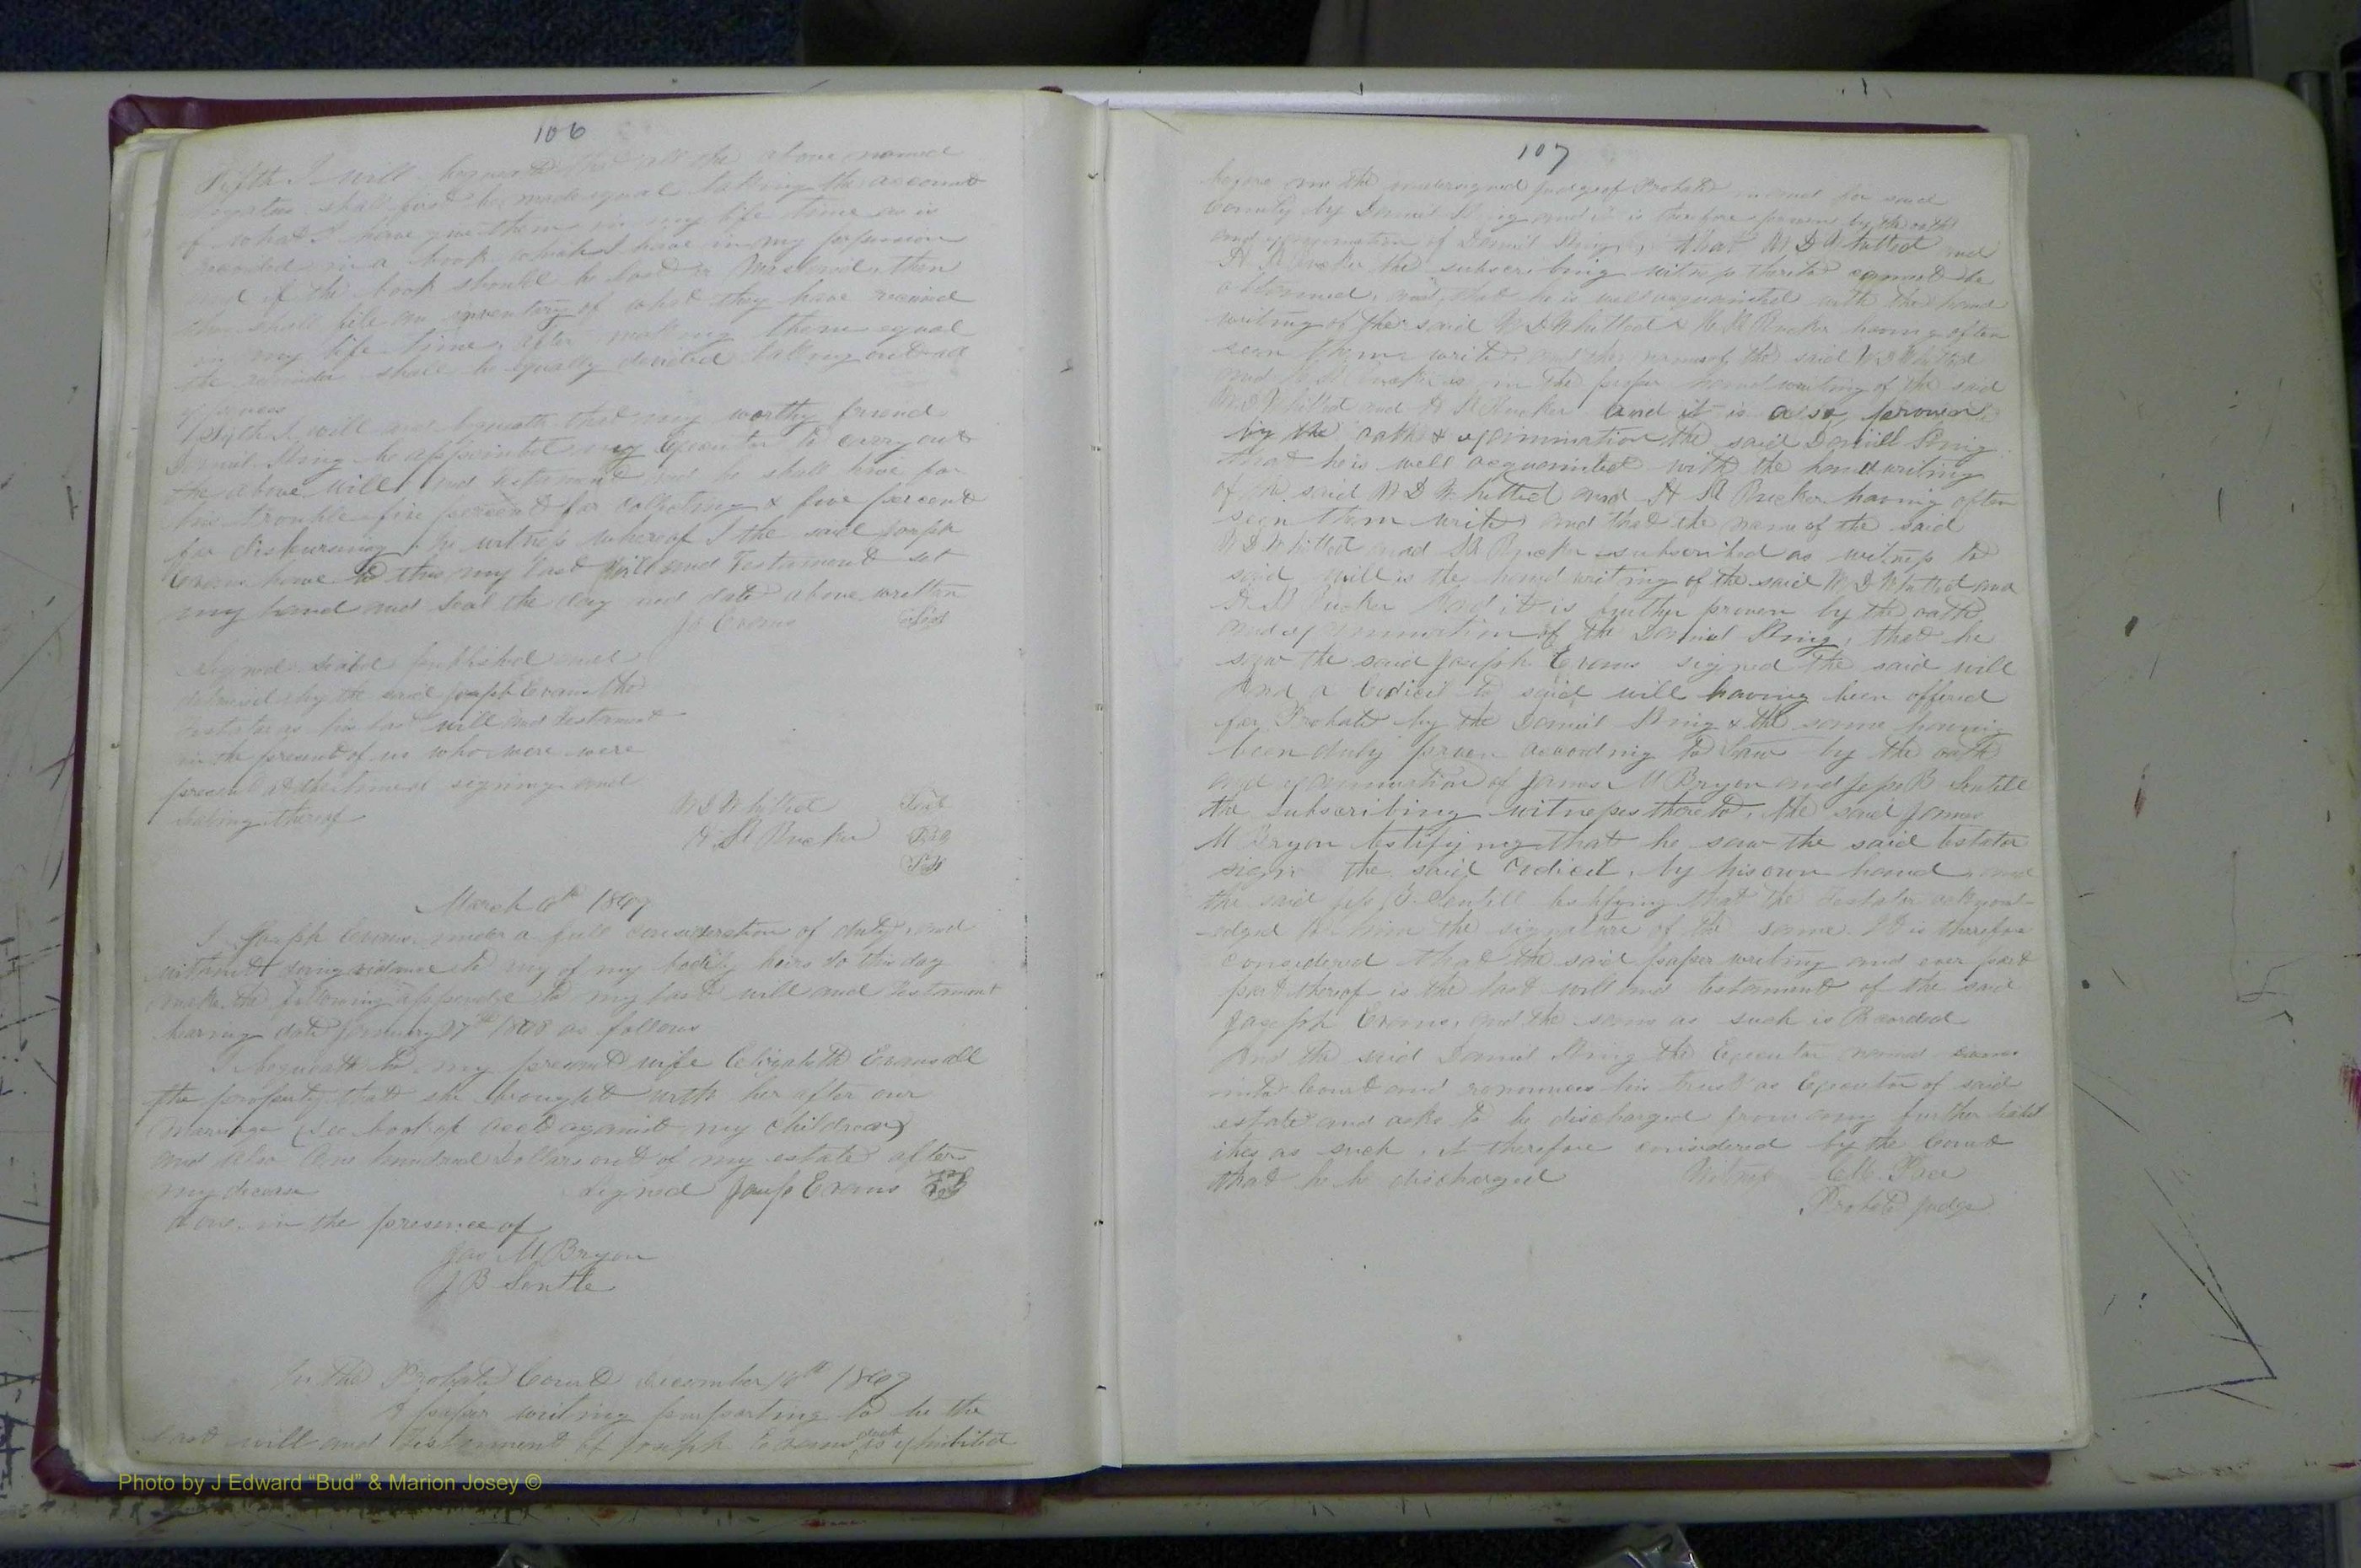 106
Fifth I will & that all the above named
legatees shall first be made equal taking the account
of what I have give them in my life time as is
recorded in a book which I have in my possession
and if the book should be lost or mislaid, then
they shall file an inventory of what they have received
in my life time, after making them equal
the remainder shall be equally devided taking out all
expences
Sixth I will and bequeath that my worthy friend
Daniel King be appointed my Executor to carry out
the above will and testament and he shall have for
his trouble five percent for collecting & five percent
for disbursing. In witness whereof I the said Joseph
Evans have to this my last will and Testament set
my hand and seal the day and date above written
Jo Evans Seal
Signed sealed published and
delivered by the said Joseph Evans the
Testator as his last will and testament
in the present of us who were were
present at the time of signing and
sealing thereof
W D Whitted Seal
H St Rucker Seal
Seal
March 6th 1869
I Joseph Evans under a full consideration of duty, and
without doing violance to any of my bodily heirs do this day
make the following appendge to my last will and Testament
bearing date January 27th 1868 as follows
I bequeath to my present wife Elizabeth Evans all
the property that she brought with her after our
marriage (See book of acct against my children)
and also One hundred Dollars out of my estate after
my decease Signed Joseph Evans Seal
done in the presence of
Jas M Bryon
J B Sentle
In the Probate Court December 14th 1869
A paper writing purporting to be the
last will and testament of Joseph Evans decd is exhibited
107
before me the undersigned judge of Probate in and for said
County by Daniel King and it is therefore proven by the oath
and examination of Daniel King, that W D Whitted and
H St Rucker the subscribing witness thereto cannot be
obtained, and that he is well acquainted with the hand
writing of the said W D Whitted & H St Rucker having often
seen them write, and the names of the said W D Whitted
and H St Rucker is in the proper hand writing of the said
W D Whitted and H St Rucker and it is also proven
by the oath & examination the said Daniell King
that he is well acquainted with the handwriting
of the said W D Whitted and H St Rucker having often
seen them write and that the name of the said
W D Whitted and St Rucker subscribed as witness to
said will is the hand writing of the said W D Whitted and
H St Rucker And it is further proven by the oath
and examination of the Daniel King, that he
saw the said Joseph Evans signed the said will
And a Codicil to said will having been offered
for Probate by the Daniel King & the same having
been duly proven according to Law by the oath
and examination of James M Bryon and Jesse B Sentell
the subscribing witnesses thereto, the said James
M Bryon testifying that he saw the said testator
sign the said Codicil, by his own hand, and
the said Jess B Sentell testifying that the Testator acknowl-
edged to him the signature of the same. It is therefore
considered that the said paper writing and ever part
part thereof is the last will and testament of the said
Joseph Evans, and the same as such is Recorded
And the said Daniel King the Executor named comes
into Court and renounces his trust as Executor of said
estate and asks to be discharged from any further liabil
ities as such, it therefore considered by the Court
that he be discharged Witness C M Pace
Probate judge
Photo by J Edward “Bud” & Marion Josey ©